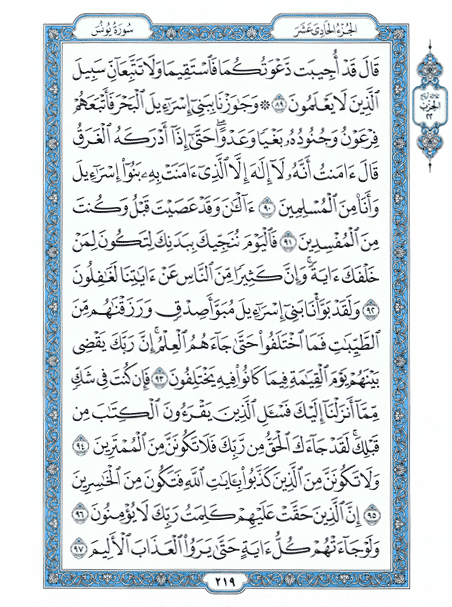 الجزء الحادي عشر
سورة يونس
قَالَ قَدْ أُجِيبَت دَّعْوَتُكُمَا فَاسْتَقِيمَا وَلَا تَتَّبِعَانِّ سَبِيلَ
الَّذِينَ لَا يَعْلَمُونَ ٨٩ ۞ وَجَاوَزْنَا بِبَنِي إِسْرَاءِيلَ الْبَحْرَ فَأَتْبَعَهُمْ
فِرْعَوْنُ وَجُنُودُهُ بَغْيًا وَعَدْوًا حَتَّى إِذَا أَدْرَكَهُ الْغَرَقُ
قَالَ ءَامَنتُ أَنَّهُ لَا إِلَهَ إِلَّا الَّذِي ءَامَنَتْ بِهِ بَنُوا إِسْرَاءِيلَ
وَأَنَا مِنَ الْمُسْلِمِينَ ٩٠ ءَالْـَٔنَ وَقَدْ عَصَيْتَ قَبْلُ وَكُنتَ
مِنَ الْمُفْسِدِينَ ٩١ فَالْيَوْمَ نُنَجِّيكَ بِبَدَنِكَ لِتَكُونَ لِمَنْ
خَلْفَكَ ءَايَةً وَإِنَّ كَثِيرًا مِّنَ النَّاسِ عَنْ ءَايَاتِنَا لَغَافِلُونَ
٩٢ وَلَقَدْ بَوَّأْنَا بَنِي إِسْرَاءِيلَ مُبَوَّأَ صِدْقٍ وَرَزَقْنَاهُم مِّنَ
الطَّيِّبَاتِ فَمَا اخْتَلَفُوا حَتَّى جَاءَهُمُ الْعِلْمُ إِنَّ رَبَّكَ يَقْضِي
بَيْنَهُمْ يَوْمَ الْقِيَامَةِ فِيمَا كَانُوا فِيهِ يَخْتَلِفُونَ ٩٣ فَإِن كُنتَ فِي شَكٍّ
مِّمَّا أَنزَلْنَا إِلَيْكَ فَسْـَٔلِ الَّذِينَ يَقْرَءُونَ الْكِتَابَ مِن
قَبْلِكَ لَقَدْ جَاءَكَ الْحَقُّ مِن رَّبِّكَ فَلَا تَكُونَنَّ مِنَ الْمُمْتَرِينَ ٩٤
وَلَا تَكُونَنَّ مِنَ الَّذِينَ كَذَّبُوا بِـَٔايَاتِ اللَّهِ فَتَكُونَ مِنَ الْخَاسِرِينَ
٩٥ إِنَّ الَّذِينَ حَقَّتْ عَلَيْهِمْ كَلِمَتُ رَبِّكَ لَا يُؤْمِنُونَ ٩٦
وَلَوْ جَاءَتْهُمْ كُلُّ ءَايَةٍ حَتَّى يَرَوُا الْعَذَابَ الْأَلِيمَ ٩٧
٢١٩
الحزب
٢٢